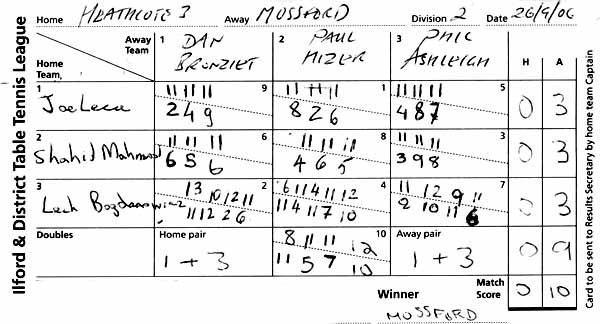 Ilford & District Table Tennis League
Home HEATHCOTE 3 Away MOSSFORD Division 2 Date 26/9/06
Away Team
Home Team
1 DAN
2 PAUL
3 PHIL ASHLEIGH
H A
1 Joe
9
11 11 11
2 4 9
1
11 11 11
8 2 6
5
11 11 11
4 8 7
0 3
2 Shahid Mahmood
6
11 11 11
6 5 6
8
11 11 11
4 6 5
3
11 11 11
3 9 8
0 3
3 Lech
2
13 10 12 11
11 12 2 6
4
6 11 4 11 12
11 4 11 7 10
7
11 12 9 11
2 10 11 6
0 3
Doubles
Home pair
1 + 3
10
8 11 11 12
11 5 7 10
Away pair
1 + 3
0 9
Winner
MOSSFORD
Match Score
0 10
Card to be sent to Results Secretary by home team Captain